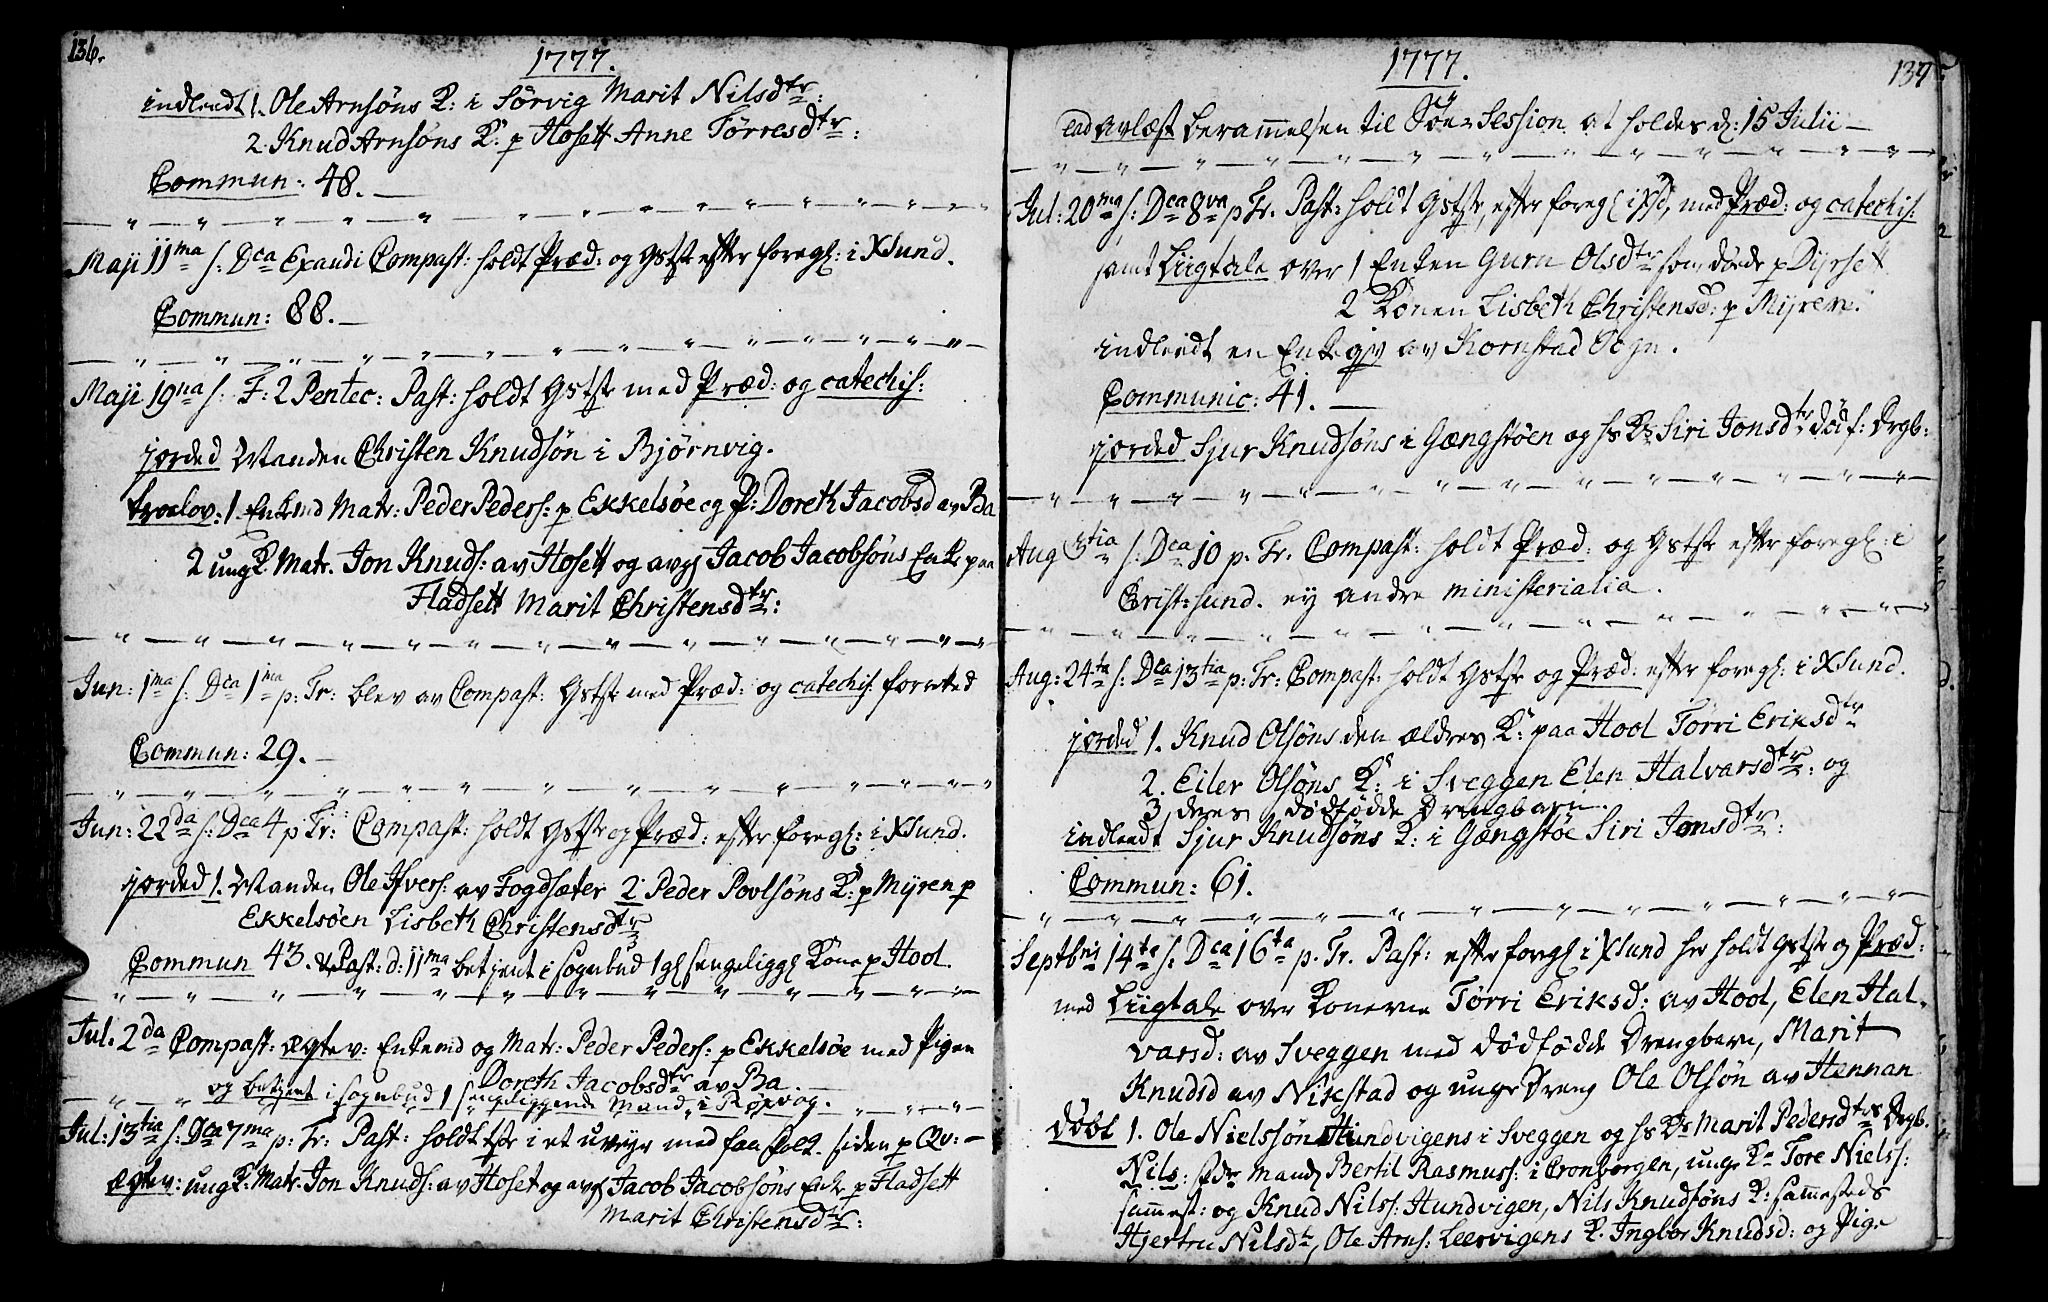 136.
1777.
indleedt 1. Ole Arnsøns K: i Sørvig Marit Nilsdtr:
2. Knud Arnsøns K: p Hosett Anne Tørresdtr:
Commun: 48. —
Maji 11ma s: Dca Exaudi Compast: holdt Præd: og Gstste efter foregl: i XSund.
Commun: 88. —
Maji 19na s: F: 2 Pentec: Past: holdt Gstste med Præd: og catechis:
jorded Manden Christen Knudsøn i Bjørnvig.
troelov: 1 Enkemd Matr: Peder Peders: p Ekkelsøe og P: Doreth Jacobsd av Ba
2 ung K Matr. Jon Knuds: av Hosett og avg Jacob Jacobsøns Enke paa
Fladsett Marit Christensdtr:
Jun: 1ma s: Dca 1ma p: Tr: blev av Compast: Gstste med Præd: og catechis: forretted
Commun: 29. —
Jun: 22da s: Dca 4 p Tr: Compast: holdt Gstste og Præd: efter foregl: i XSund.
jorded 1. Manden Ole Ifvers: av Fogdsæter 2 Peder Povlsøns K: p Myren p
Ekkelsøen Lisbeth Christensdtr
Commun 43. Past: d: 11ma betjent i sognebud 1 gl sengeliggl Kone p Hool
Jul. 2da Compast: ægtev: Enkemd og Matr: Peder Peders: p Ekkelsøe med Pigen
Doreth Jacobsdtr av Ba. —
og betjent i sognebud 1 sengeliggende Mand i Røxvog.
Jul: 13tia s: Dca 7ma p: Tr: Past: holdt tste i et uveyr med faa folk. siden p Qv: —
ægtev: ung K: Matr. Jon Knuds: av Hoset og avg Jacob Jacobsøns Enke p Fladsett
Marit Christensdtr:
1777.
137
Ead avlæst berammelsen til Søe Session at holdes d: 15 Julii —
Jul: 20ma s: Dca 8va p Tr. Past: holdt Gstste, efter foregl i Xsd, med Præd: og catechis:
samt Liigtale over 1 Enken Guru Olsdtr som døde p Dyrsett
2 Konen Lisbeth Christensd: p Myrene.
indleedt en Enkegv av Kornstad Sogn.
Communic: 41. —
jorded Sjur Knudsøns i Gængstøen og hs Ks Siri Jonsdtr døf: Drgb:
Aug 3tia s: Dca 10 p. Tr. Compast: holdt Præd: og Gstste efter foregl: i
Crist:sund. ey andre ministerialia.
Aug: 24ta s: Dca 13tia p: Tr: Compast: holdt Gstste og Præd: efter foregl: i XSund.
jorded 1. Knud Olsøns den ældres K: paa Hool Törri Eriksdtr
2. Eiler Olsøns K: i Sveggen Elen Halvarsdtr: og
3, deres dødfødde Drengbarn.
indleedt Sjur Knudsøns K: i Gængstøe Siri Jonsdtr:
Commun: 61.
Septbri 14ta s. Dca 16ta p. Tr. Past: efter foregl i XSund her holdt Gstste og Præd:
med Liigtale over Konerne Törri Eriksd: av Hool, Elen Hal-
varsd: av Sveggen med dødfødde Drengbarn, Marit
Knudsd av Nixstad og unge Dreng Ole Olsøn av Hennan
Døbt 1. Ole Nielssøn Hundvigens i Sveggen og hs Ks Marit Pedersdtrs Drgb.
Nils: fdre Mands Bertil Rasmuss: i Cronborgen, unge K Tore Niels:
sammest: og Knud Nilss: Hundvigen, Nils Knudsøns K: sammesteds
Hjertru Nilsdtr, Ole Arns: Leervigens K. Ingbor Knudsd: og Pige